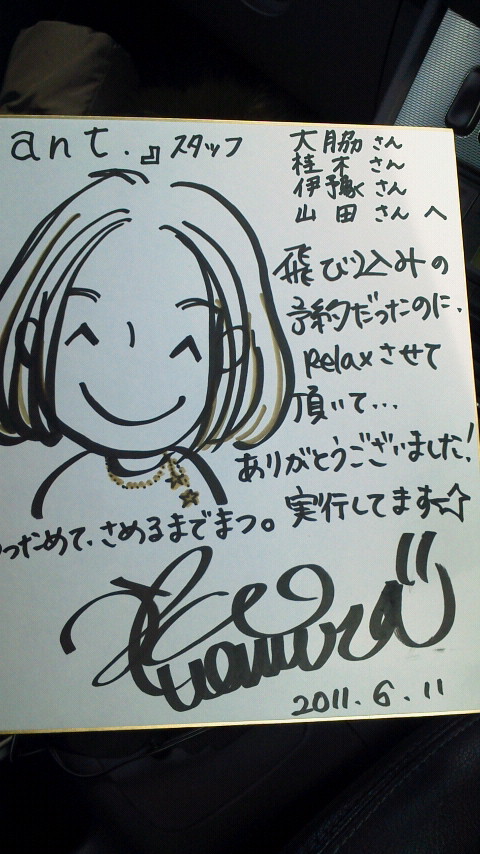 ant.』スタッフ
大脇さん
桂木さん
伊豫さん
山田さんへ
飛び込みの
予約だったのに、
Relaxさせて
頂いて…
ありがとうございました!
実行してます☆
っためて、さめるまでまつ。
2011.6.11